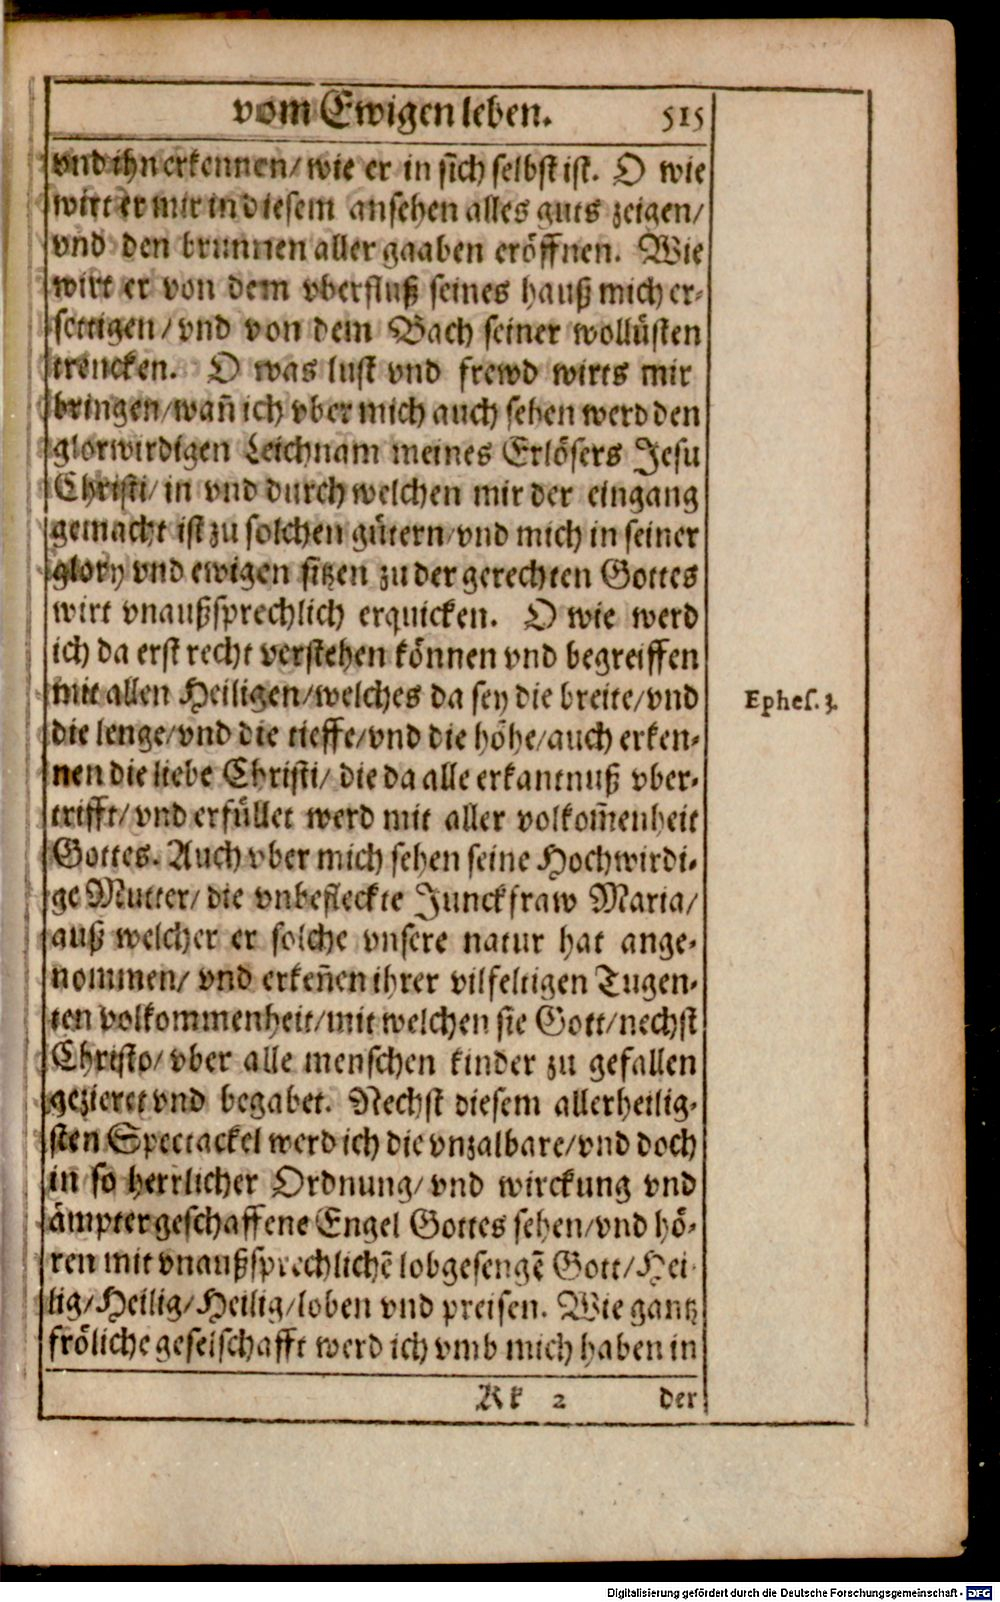 vom Ewigen leben. 515
vnd ihn erkennen/ wie er in sich selbst ist. O wie
wirt er mir in diesem ansehen alles guts zeigen/
vnd den brunnen aller gaaben eröffnen. Wie
wirt er von dem vberfluß seines hauß mich er-
settigen/ vnd von dem Bach seiner wollüsten
trencken. O was lust vnd frewd wirts mir
bringen/ wañ ich vber mich auch sehen werd den
glorwirdigen Leichnam meines Erlösers Jesu
Christi/ in vnd durch welchen mir der eingang
gemacht ist zu solchen gütern/ vnd mich in seiner
glory vnd ewigen sitzen zu der gerechten Gottes
wirt vnaußsprechlich erquicken. O wie werd
ich da erst recht verstehen können vnd begreiffen
mit allen Heiligen/ welches da sey die breite/ vnd
Ephes. 3.
die lenge/ vnd die tieffe/ vnd die höhe/ auch erken-
nen die liebe Christi/ die da alle erkantnuß vber-
trifft/ vnd erfüllet werd mit aller volkom̃enheit
Gottes. Auch vber mich sehen seine Hochwirdi-
ge Mutter/ die vnbefleckte Junckfraw Maria/
auß welcher er solche vnsere natur hat ange-
nommen/ vnd erkeñen ihrer vilfeltigen Tugen-
ten volkommenheit/ mit welchen sie Gott/ nechst
Christo/ vber alle menschen kinder zu gefallen
gezieret vnd begabet. Nechst diesem allerheilig-
sten Spectackel werd ich die vnzalbare/ vnd doch
in so herrlicher Ordnung/ vnd wirckung vnd
ämpter geschaffene Engel Gottes sehen/ vnd hö-
ren mit vnaußsprechlichē lobgesengē Gott/ Hei-
lig/ Heilig/ Heilig/ loben vnd preisen. Wie gantz
fröliche geselschafft werd ich vmb mich haben in
Kk 2 der
Digitalisierung gefördert durch die Deutsche Forschungsgemeinschaft - DFG